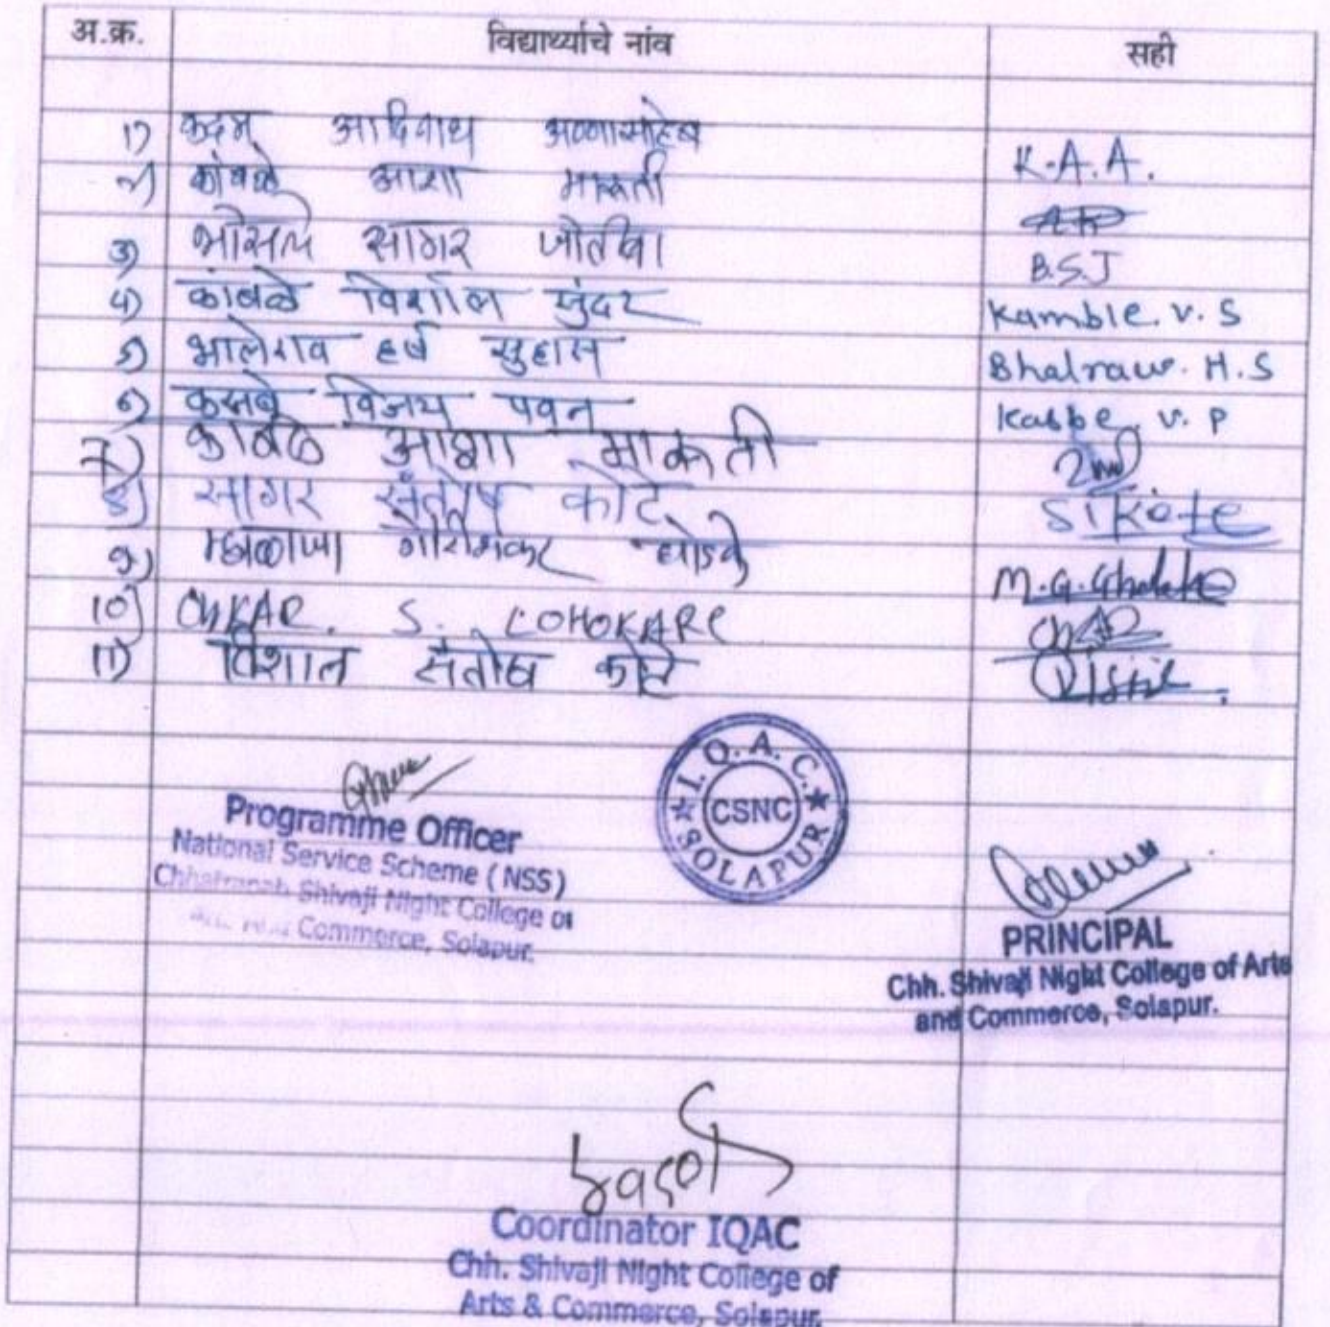 अ.क्र. विद्यार्थ्याचे नांव सही
1) कदम आदिनाथ अण्णासाहेब K.A.A.
2) कांबळे आशा मारुती
3) भोसले सागर जोतीबा B.S.J
4) कांबळे विशाल सुंदर Kamble. V. S
5) भालेराव हर्ष सुहास Bhalraw. H.S
6) कसबे विजय पवन Kasbe. V. P
7) कांबळे आशा मारुती
8) सागर संतोष कोटे S. Kote
9) M.G.
10) OMKAR. S. LOHOKARE
11) विशाल संतोष कोटे
I.Q.A.C.
CSNC
SOLAPUR
Programme Officer
National Service Scheme (NSS)
Chhatrapati Shivaji Night College of
Commerce, Solapur.
PRINCIPAL
Chh. Shivaji Night College of Arts
and Commerce, Solapur.
Coordinator IQAC
Chh. Shivaji Night College of
Arts & Commerce, Solapur.